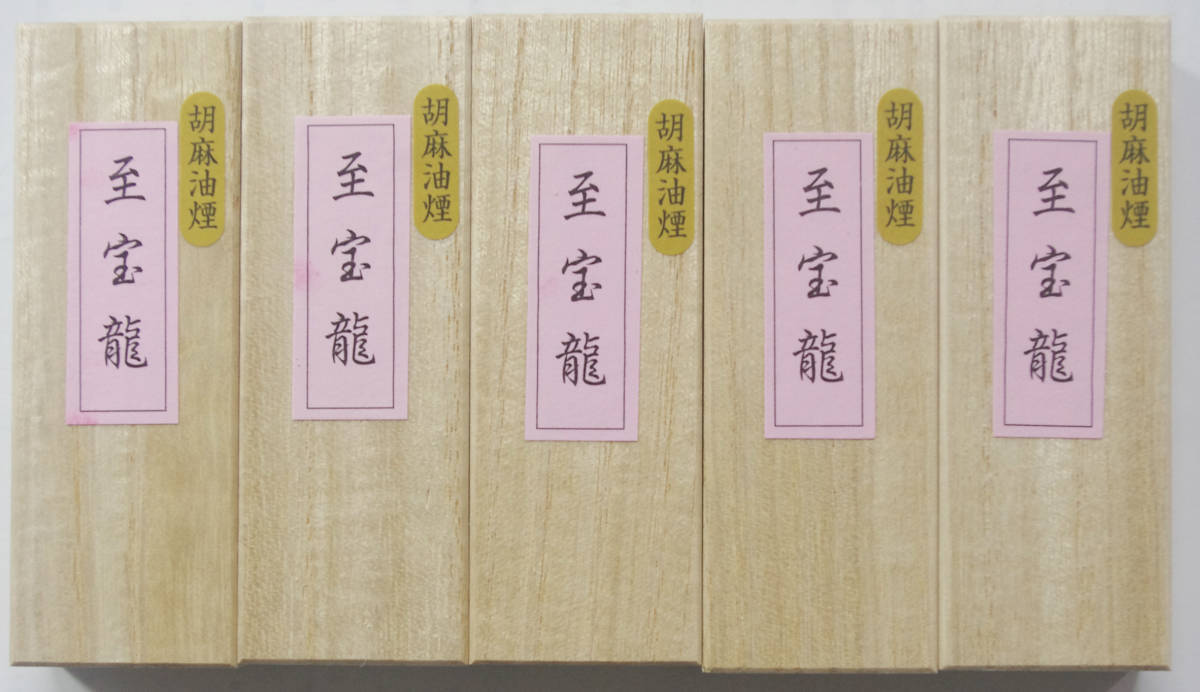 至宝龍
胡麻油煙
至宝龍
胡麻油煙
至宝龍
胡麻油煙
至宝龍
胡麻油煙
至宝龍
胡麻油煙